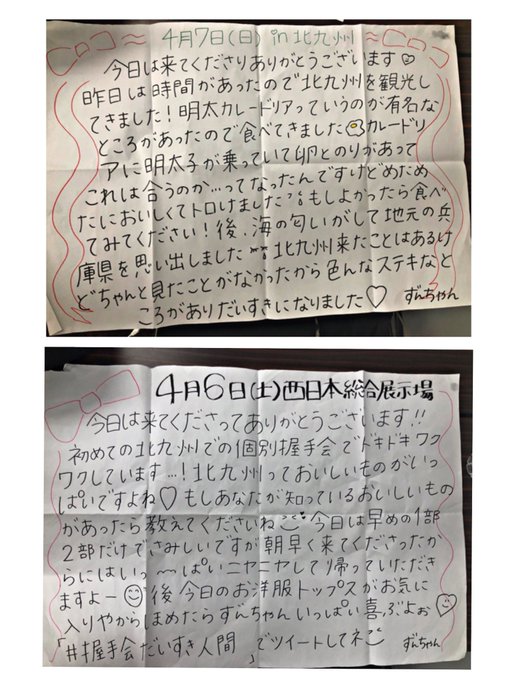 4月7日(日) in 北九州
今日は来てくださりありがとうございます♡
昨日は時間があったので北九州を観光し
てきました！明太カレードリアっていうのが有名な
ところがあったので食べてきました カレードリ
アに明太子が乗っていて卵とのりがあって
これは合うのか...ってなったんですけどめため
たにおいしくてトロけました もしよかったら食べ
てみてください！後、海の匂いがして地元の兵
庫県を思い出しました 北九州来たことはあるけ
どちゃんと見たことがなかったから色んなステキなと
ころがありだいすきになりました♡ ずんちゃん
4月6日(土)西日本総合展示場
今日は来てくださってありがとうございます!!
初めての北九州での個別握手会でドキドキワク
ワクしています...！北九州っておいしいものがいっ
ぱいですよね♡ もしあなたが知っているおいしいもの
があったら教えてくださいね 今日は早めの1部
2部だけでさみしいですが朝早く来てくださったか
らにはいっ〜ぱいニヤニヤして帰っていただき
ますよー 後今日のお洋服トップスがお気に
入りやからほめたらずんちゃんいっぱい喜ぶよぉ
「#握手会だいすき人間」でツイートしてネ ずんちゃん